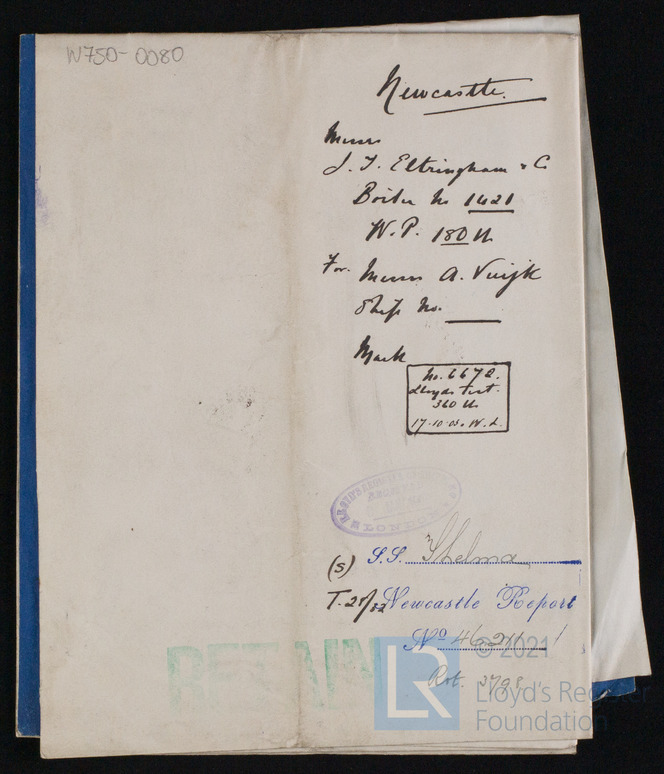 W750-0080
Newcastle.
Messrs
J. T. Eltringham & Co
Boiler No 1421
W.P. 180 lb
For Messrs A. Vuijk
Ship No.
Mark
No. 6678.
Lloyds Test.
360 lb
17.10.03. W.L.
(S) S.S. Thelma
T. 28/82 Newcastle Report
No 46241
© 2021
RETAIN
LR
Rot. 3798
Lloyd's Register
Foundation